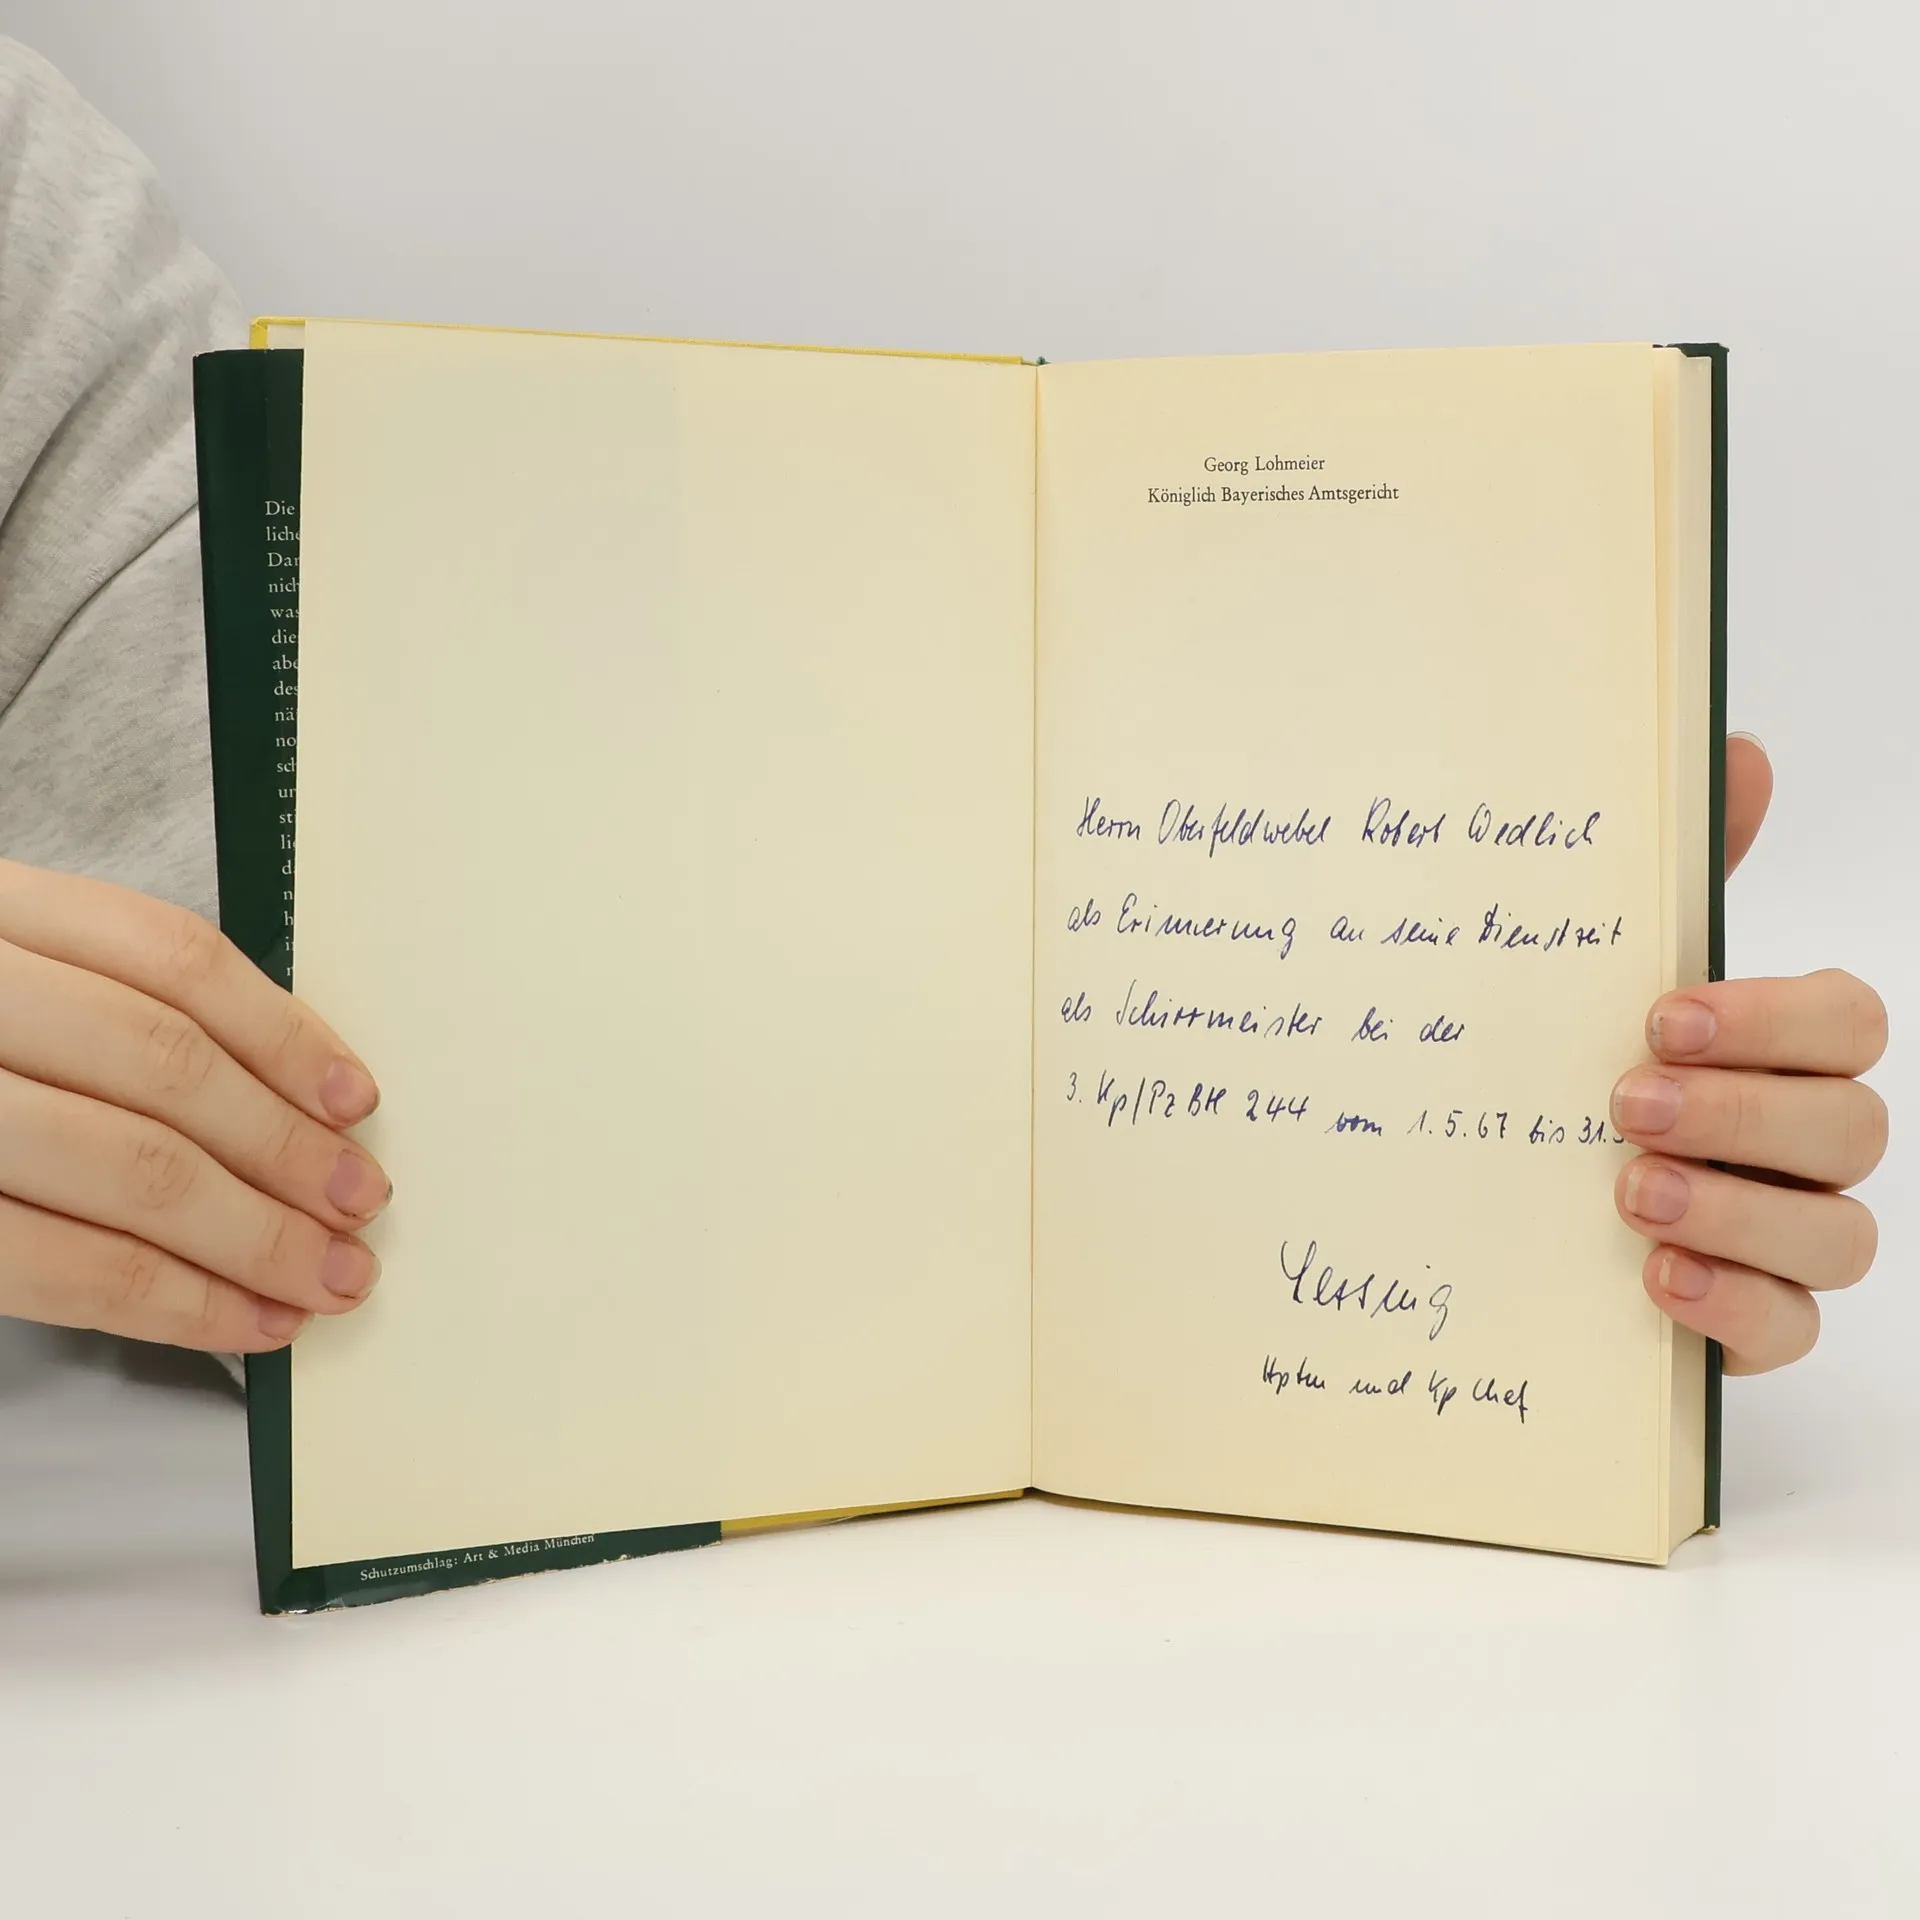 Die
lich
Dar
nich
was
die
abe
des
nä
no
sch
un
sti
lie
da
n
h
i
Schutzumschlag: Art & Media München
Georg Lohmeier
Königlich Bayerisches Amtsgericht
Herrn Oberfeldwebel Robert Wedlich
als Erinnerung an seine Dienstzeit
als Schirrmeister bei der
3. Kp/Pz Btl 244 vom 1.5.67 bis 31.
Lessing
Hptm und Kp Chef